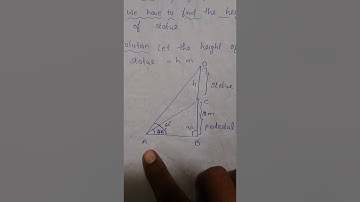 We have to find the hei
of statue
Solution Let the height of
statue = h m
D
h
Statue
C
pedestal
A
B